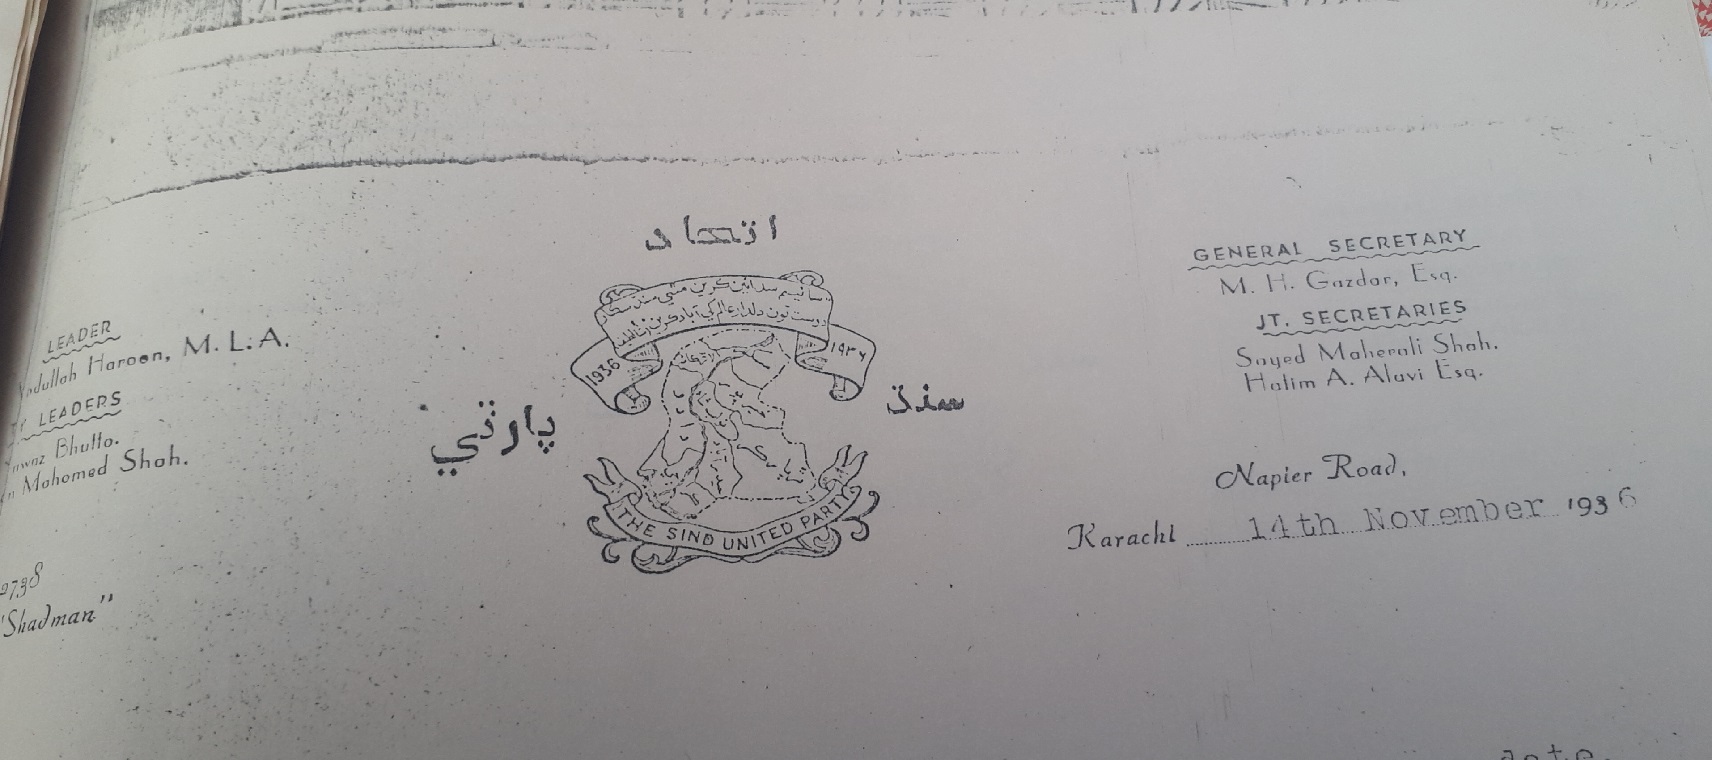 LEADER
Haroon, M.L.A.
LEADERS
Bhutto.
Mahomed Shah.
2738
"Shadman"
اتحاد
سنڌ
پارٽي
1936
۱۹۳۶
THE SIND UNITED PARTY
GENERAL SECRETARY
M. H. Gazdar, Esq.
JT. SECRETARIES
Sayed Maherali Shah.
Halim A. Alavi Esq.
Napier Road,
Karachi 14th November 1936